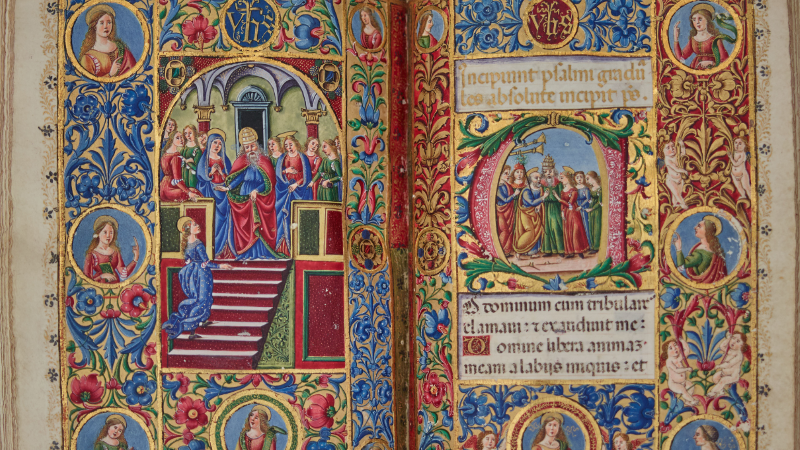 yhs
yhs
Incipiunt psalmi gradu
les absolute incipit ps.
AD dominum cum tribularer
clamaui: ⁊ exaudiuit me:
Domine libera animaz
meam a labijs iniquis: et